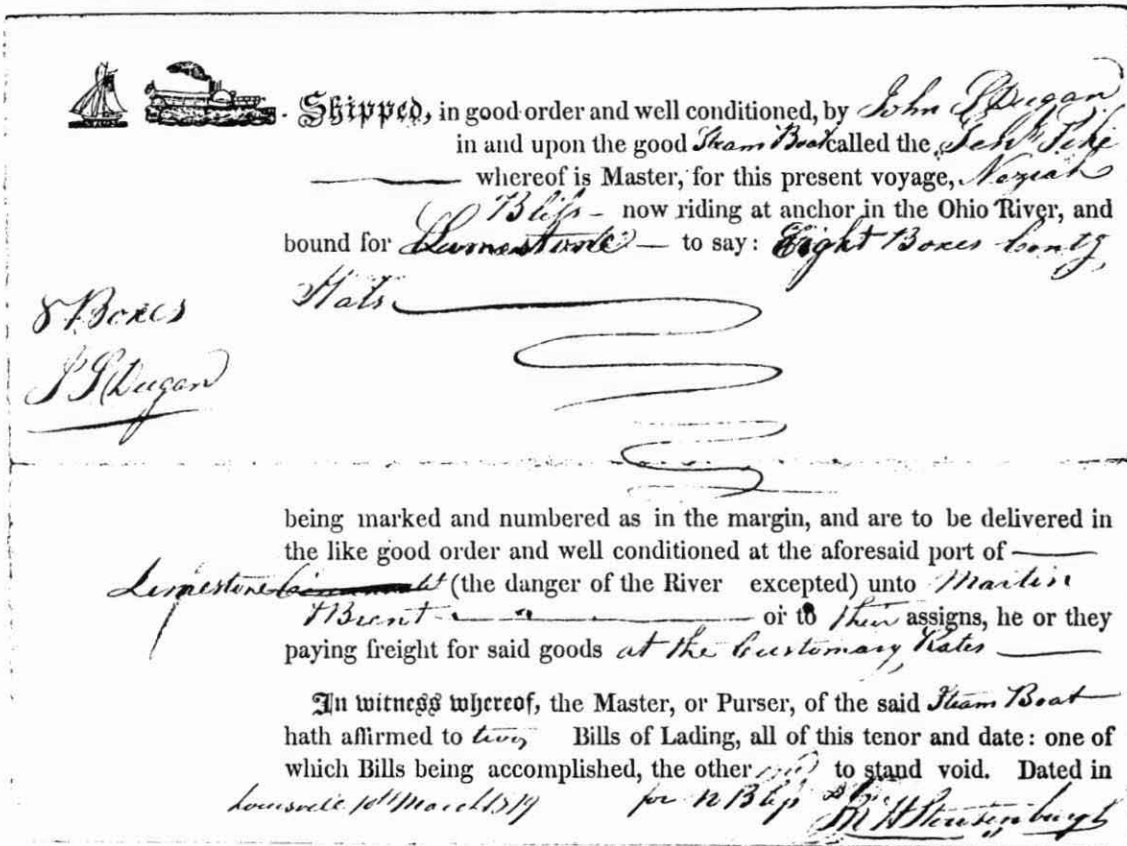 Shipped, in good order and well conditioned, by John S Dugan
in and upon the good Steam Boat called the Genl Pike
whereof is Master, for this present voyage, Neziah
Bliss - now riding at anchor in the Ohio River, and
bound for Limestone — to say: Eight Boxes Contg
Hats
8 Boxes
J S Dugan
being marked and numbered as in the margin, and are to be delivered in
the like good order and well conditioned at the aforesaid port of
Limestone (the danger of the River excepted) unto Martin
& Brent or to their assigns, he or they
paying freight for said goods at the Customary Rates
In witness whereof, the Master, or Purser, of the said Steam Boat
hath affirmed to two Bills of Lading, all of this tenor and date: one of
which Bills being accomplished, the other to stand void. Dated in
Louisville 10th March 1819 for N Bliss